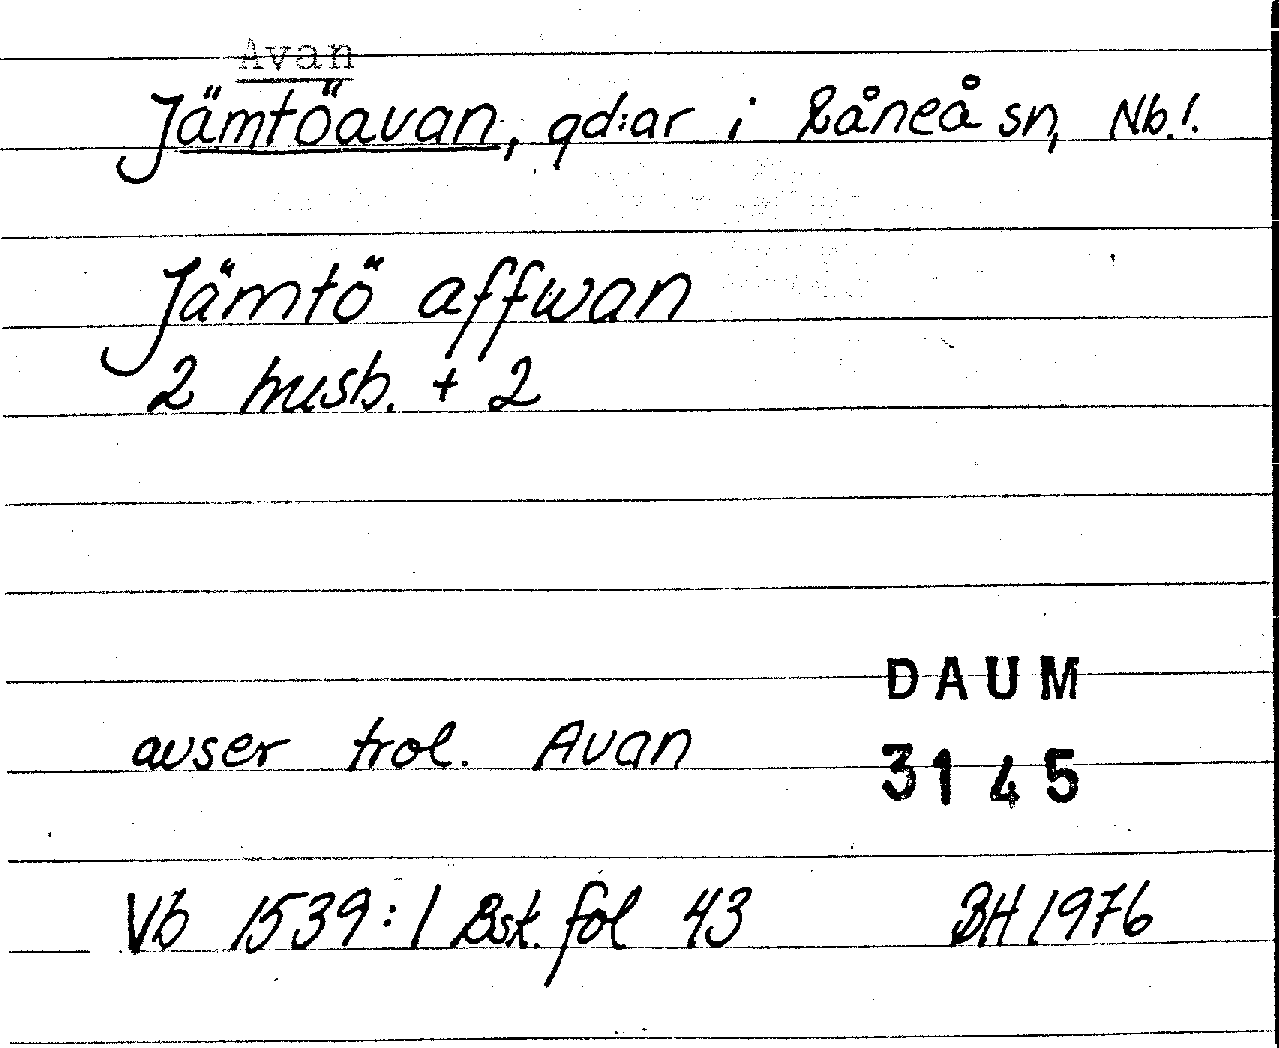 Avan
Jämtöavan, gd:ar i Råneå sn, Nb.l.
Jämtö affwan
2 husb. + 2
DAUM
avser trol. Avan
3145
Vb 1539:1 Bsk. fol 43 BH 1976